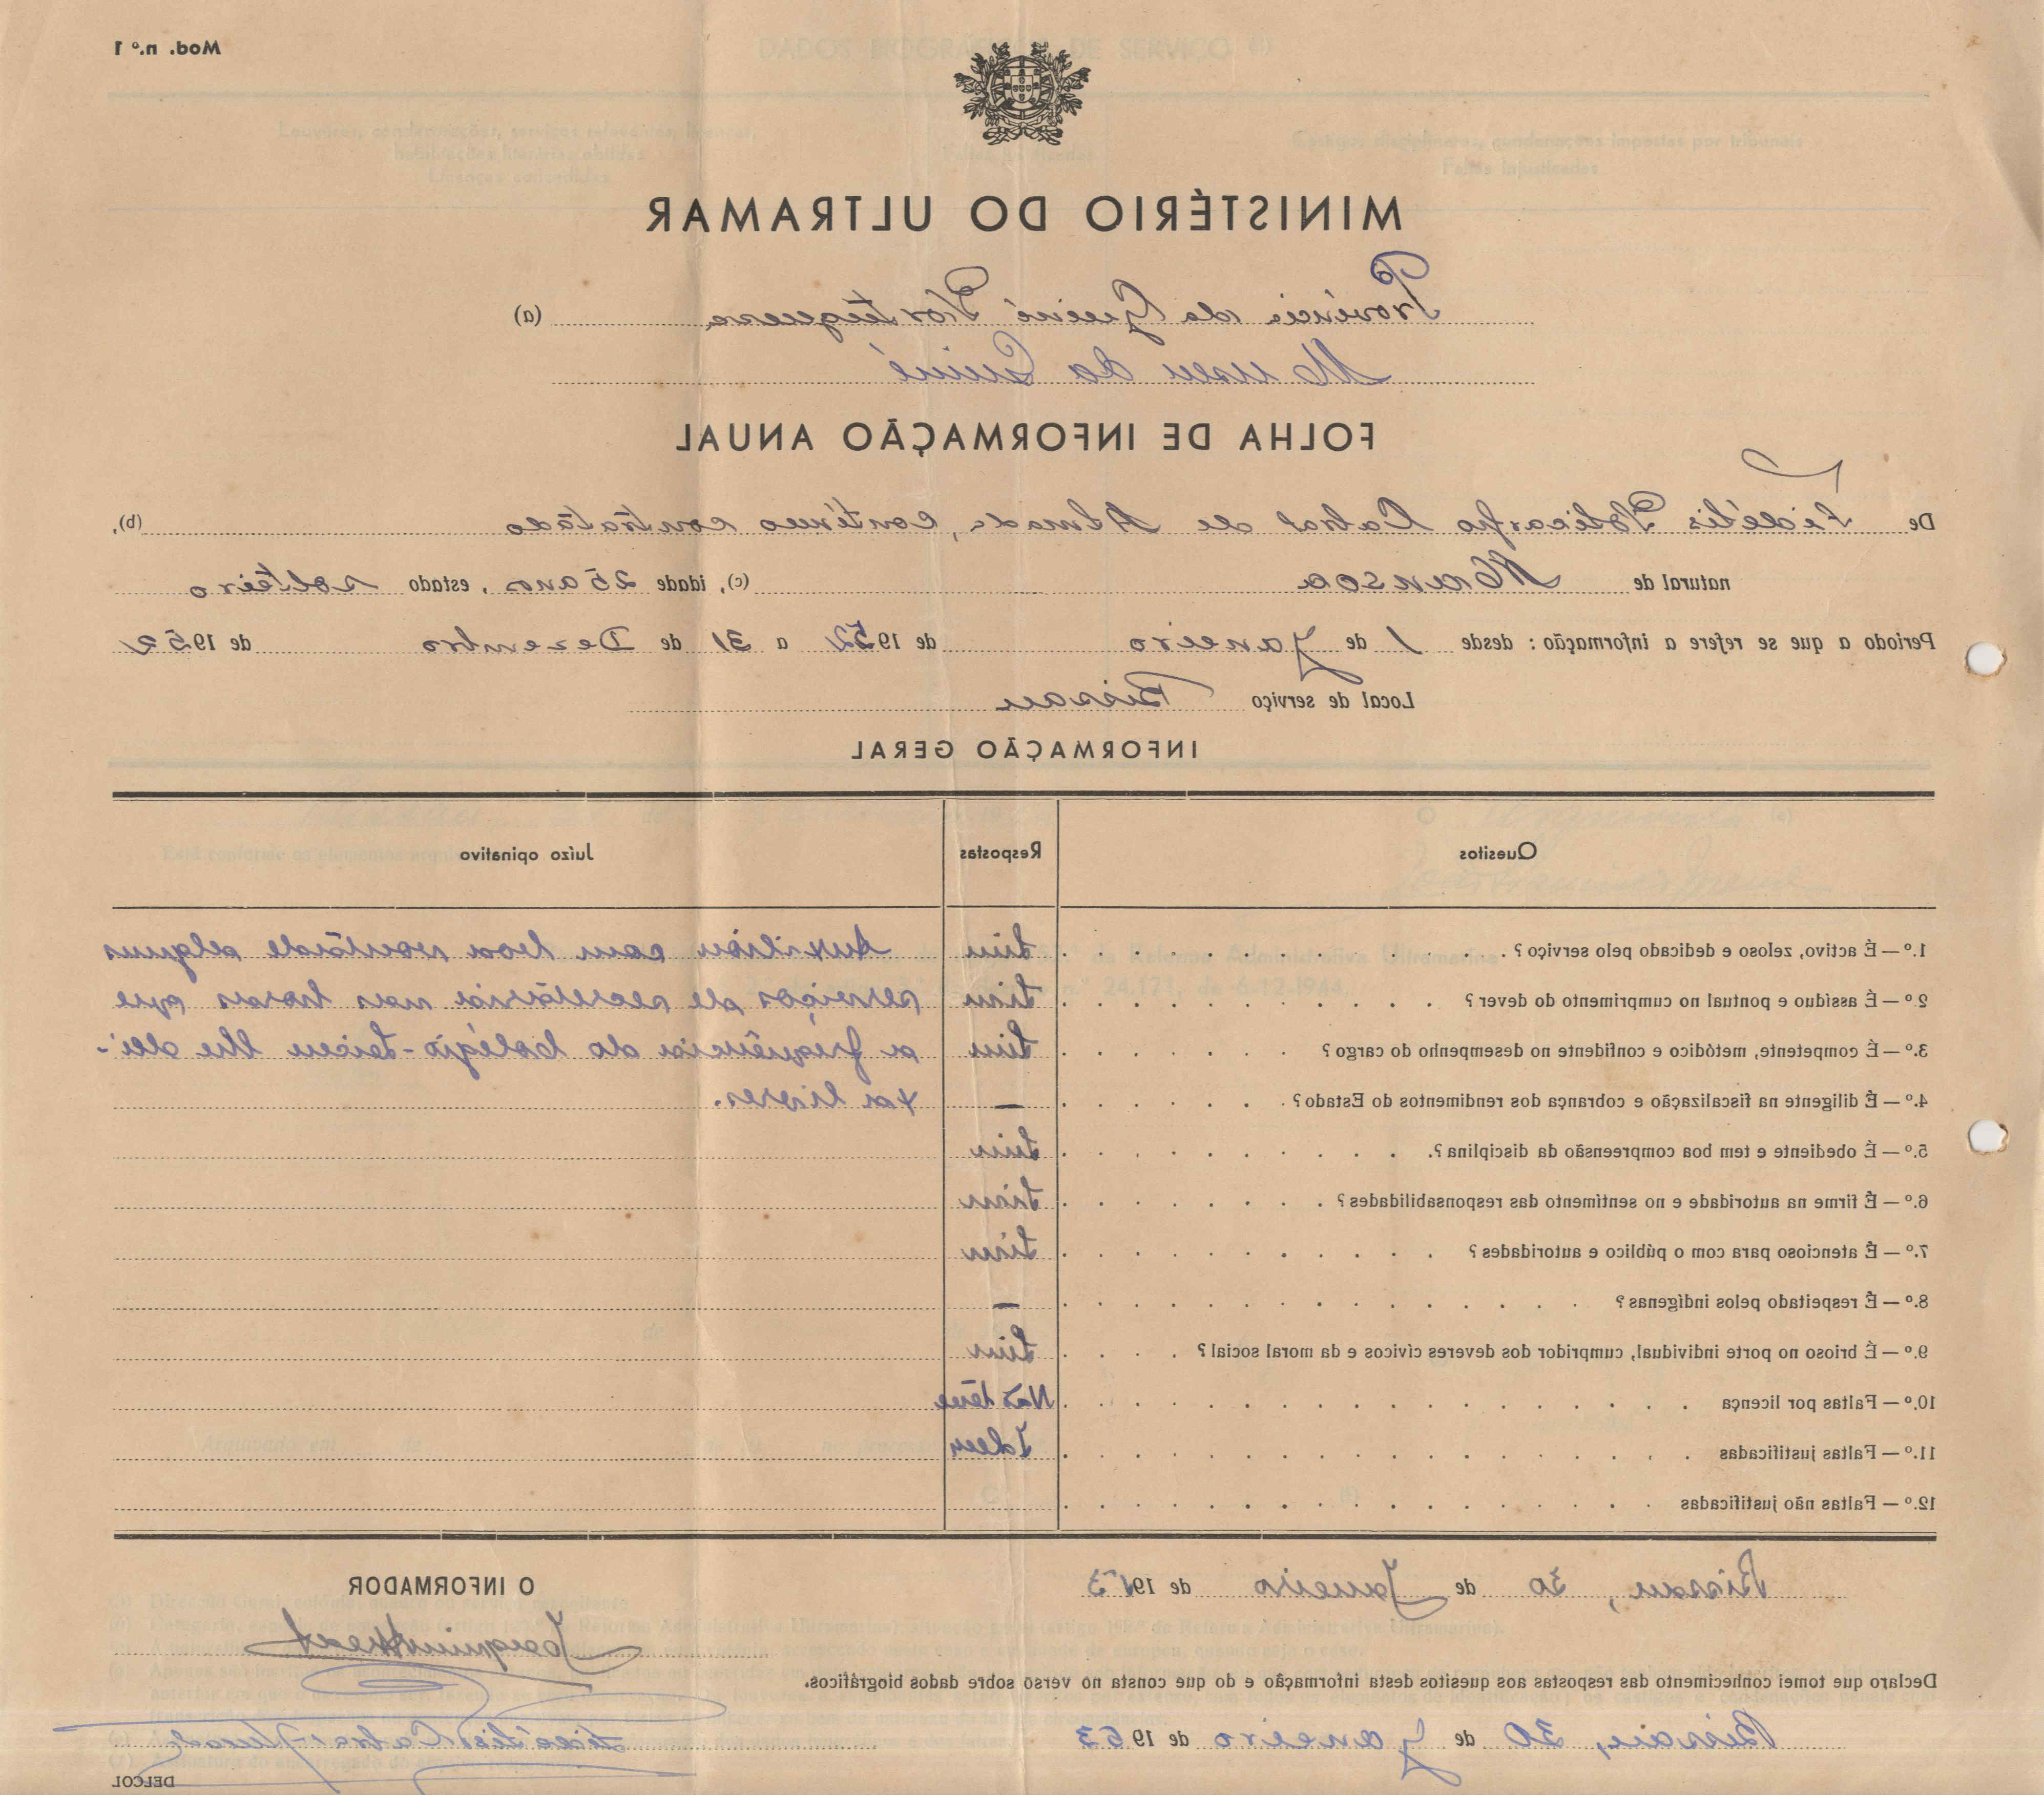 Mod. n.º 1
MINISTÉRIO DO ULTRAMAR
Província da Guiné Portuguesa (a)
Museu da Guiné
FOLHA DE INFORMAÇÃO ANUAL
De Fidélis Policarpo Cabral de Almada, contínuo contratado (b),
natural de Mansoa (c), idade 25 anos, estado solteiro
Periodo a que se refere a informação: desde 1 de Janeiro de 1952 a 31 de Dezembro de 1952
Local de serviço Bissau
INFORMAÇÃO GERAL
Quesitos Respostas Juízo opinativo
1.º — É activo, zeloso e dedicado pelo serviço? Sim Auxiliou com boa vontade alguns
2.º — É assíduo e pontual no cumprimento do dever? Sim serviços de secretária nas horas que
3.º — É competente, metódico e confidente no desempenho do cargo? Sim a frequência do Colégio-Liceu lhe dei-
4.º — É diligente na fiscalização e cobrança dos rendimentos do Estado? — xa livres.
5.º — É obediente e tem boa compreensão da disciplina? Sim
6.º — É firme na autoridade e no sentimento das responsabilidades? Sim
7.º — É atencioso para com o público e autoridades? Sim
8.º — É respeitado pelos indígenas? —
9.º — É brioso no porte individual, cumpridor dos deveres cívicos e da moral social? Sim
10.º — Faltas por licença Não teve
11.º — Faltas justificadas Idem
12.º — Faltas não justificadas
Bissau, 30 de Janeiro de 1953
O INFORMADOR
Declaro que tomei conhecimento das respostas aos quesitos desta informação e do que consta no verso sobre dados biográficos.
Bissau, 30 de Janeiro de 1953
Fidélis Cabral Almada
DELCOL